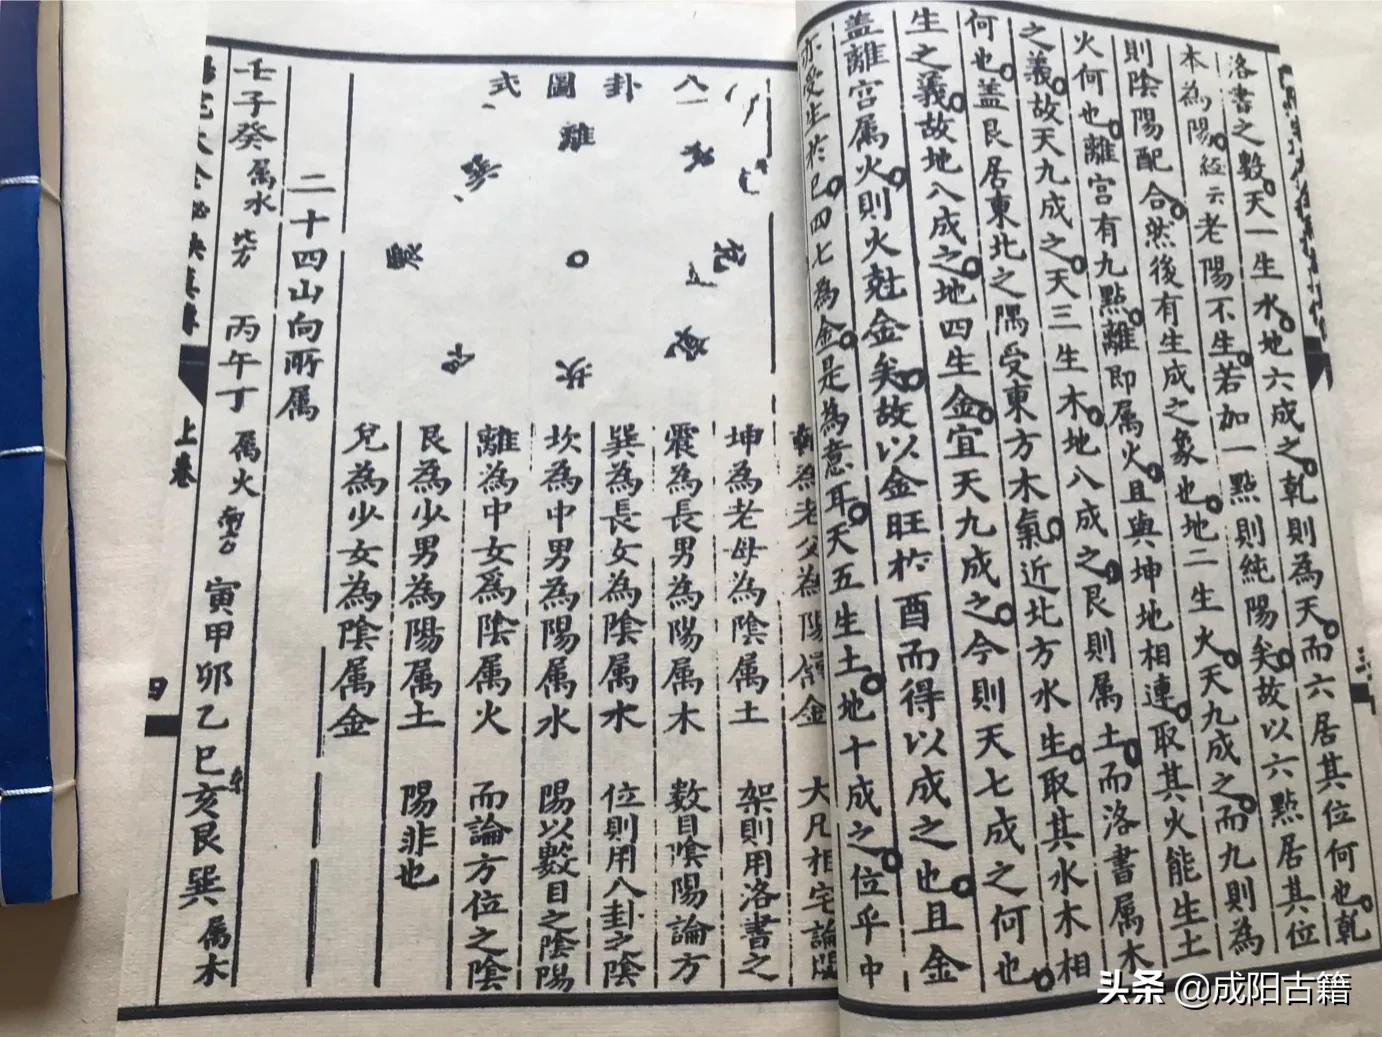 洛書之數天一生水地六成之乾則為天而六居其位何也乾
本為陽經云老陽不生若加一點則純陽矣故以六點居其位
則陰陽配合然後有生成之象也地二生火天九成之而九則為
火何也離宮有九點離即属火且與坤地相連取其火能生土
之義故天九成之天三生木地八成之艮則属土而洛書属木
何也盖艮居東北之隅受東方木氣近北方水生取其水木相
生之義故地八成之地四生金宜天九成之今則天七成之何也
盖離宮属火則火尅金矣故以金旺於酉而得以成之也且金
亦受生於巳四七為金是為意耳天五生土地十成之位乎中
八卦圖式
離
坎
乾為老父為陽属金
大凡相宅論
坤為老母為陰属土
架則用洛書之
震為長男為陽属木
数目陰陽論方
巽為長女為陰属木
位則用八卦之陰
坎為中男為陽属水
陽以數目之陰陽
離為中女為陰属火
而論方位之陰
艮為少男為陽属土
陽非也
兌為少女為陰属金
二十四山向所属
壬子癸属水北方 丙午丁属火南方 寅甲卯乙巳亥艮巽属木
上卷
四
头条 @成阳古籍